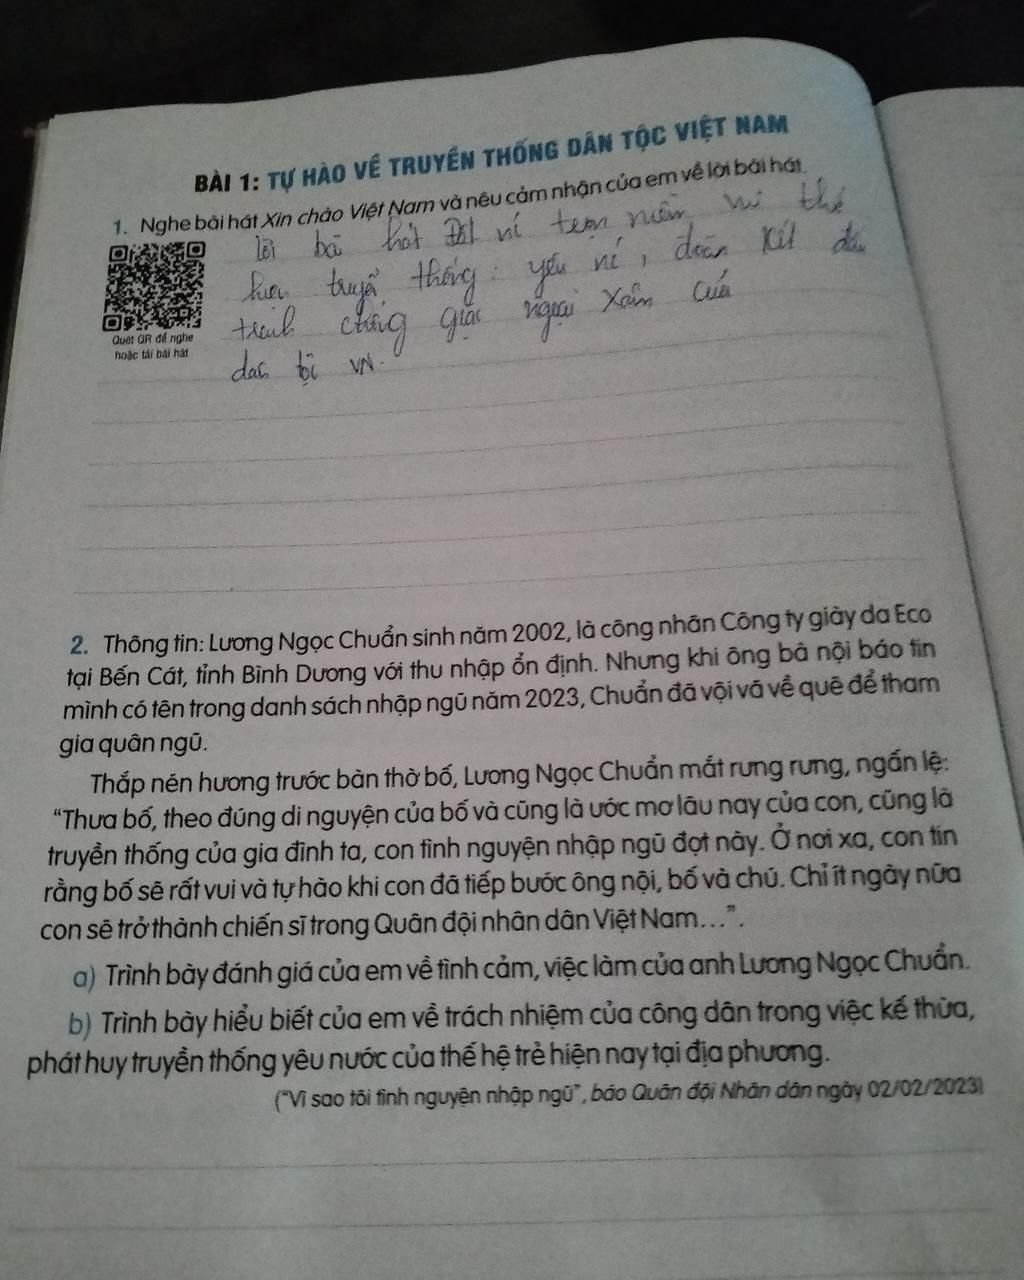 BÀI 1: TỰ HÀO VỀ TRUYỀN THỐNG DÂN TỘC VIỆT NAM
1. Nghe bài hát Xin chào Việt Nam và nêu cảm nhận của em về lời bài hát.
Quét QR để nghe
hoặc tải bài hát
hát Đất niềm thể
truyền thống: yêu , đoàn kết
chống giặc ngoại xâm của
VN.
2. Thông tin: Lương Ngọc Chuẩn sinh năm 2002, là công nhân Công ty giày da Eco
tại Bến Cát, tỉnh Bình Dương với thu nhập ổn định. Nhưng khi ông bà nội báo tin
mình có tên trong danh sách nhập ngũ năm 2023, Chuẩn đã vội vã về quê để tham
gia quân ngũ.
Thắp nén hương trước bàn thờ bố, Lương Ngọc Chuẩn mắt rưng rưng, ngấn lệ:
“Thưa bố, theo đúng di nguyện của bố và cũng là ước mơ lâu nay của con, cũng là
truyền thống của gia đình ta, con tình nguyện nhập ngũ đợt này. Ở nơi xa, con tin
rằng bố sẽ rất vui và tự hào khi con đã tiếp bước ông nội, bố và chú. Chỉ ít ngày nữa
con sẽ trở thành chiến sĩ trong Quân đội nhân dân Việt Nam…”.
a) Trình bày đánh giá của em về tình cảm, việc làm của anh Lương Ngọc Chuẩn.
b) Trình bày hiểu biết của em về trách nhiệm của công dân trong việc kế thừa,
phát huy truyền thống yêu nước của thế hệ trẻ hiện nay tại địa phương.
(“Vì sao tôi tình nguyện nhập ngũ”, báo Quân đội Nhân dân ngày 02/02/2023)